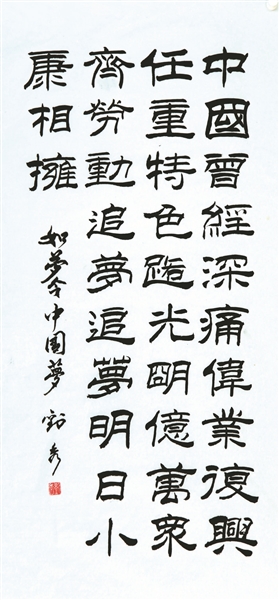 中國曾經深痛偉業復興
任重特色路光朙億萬眾
齊勞動追夢追夢明日小
康相擁
如夢令中国夢